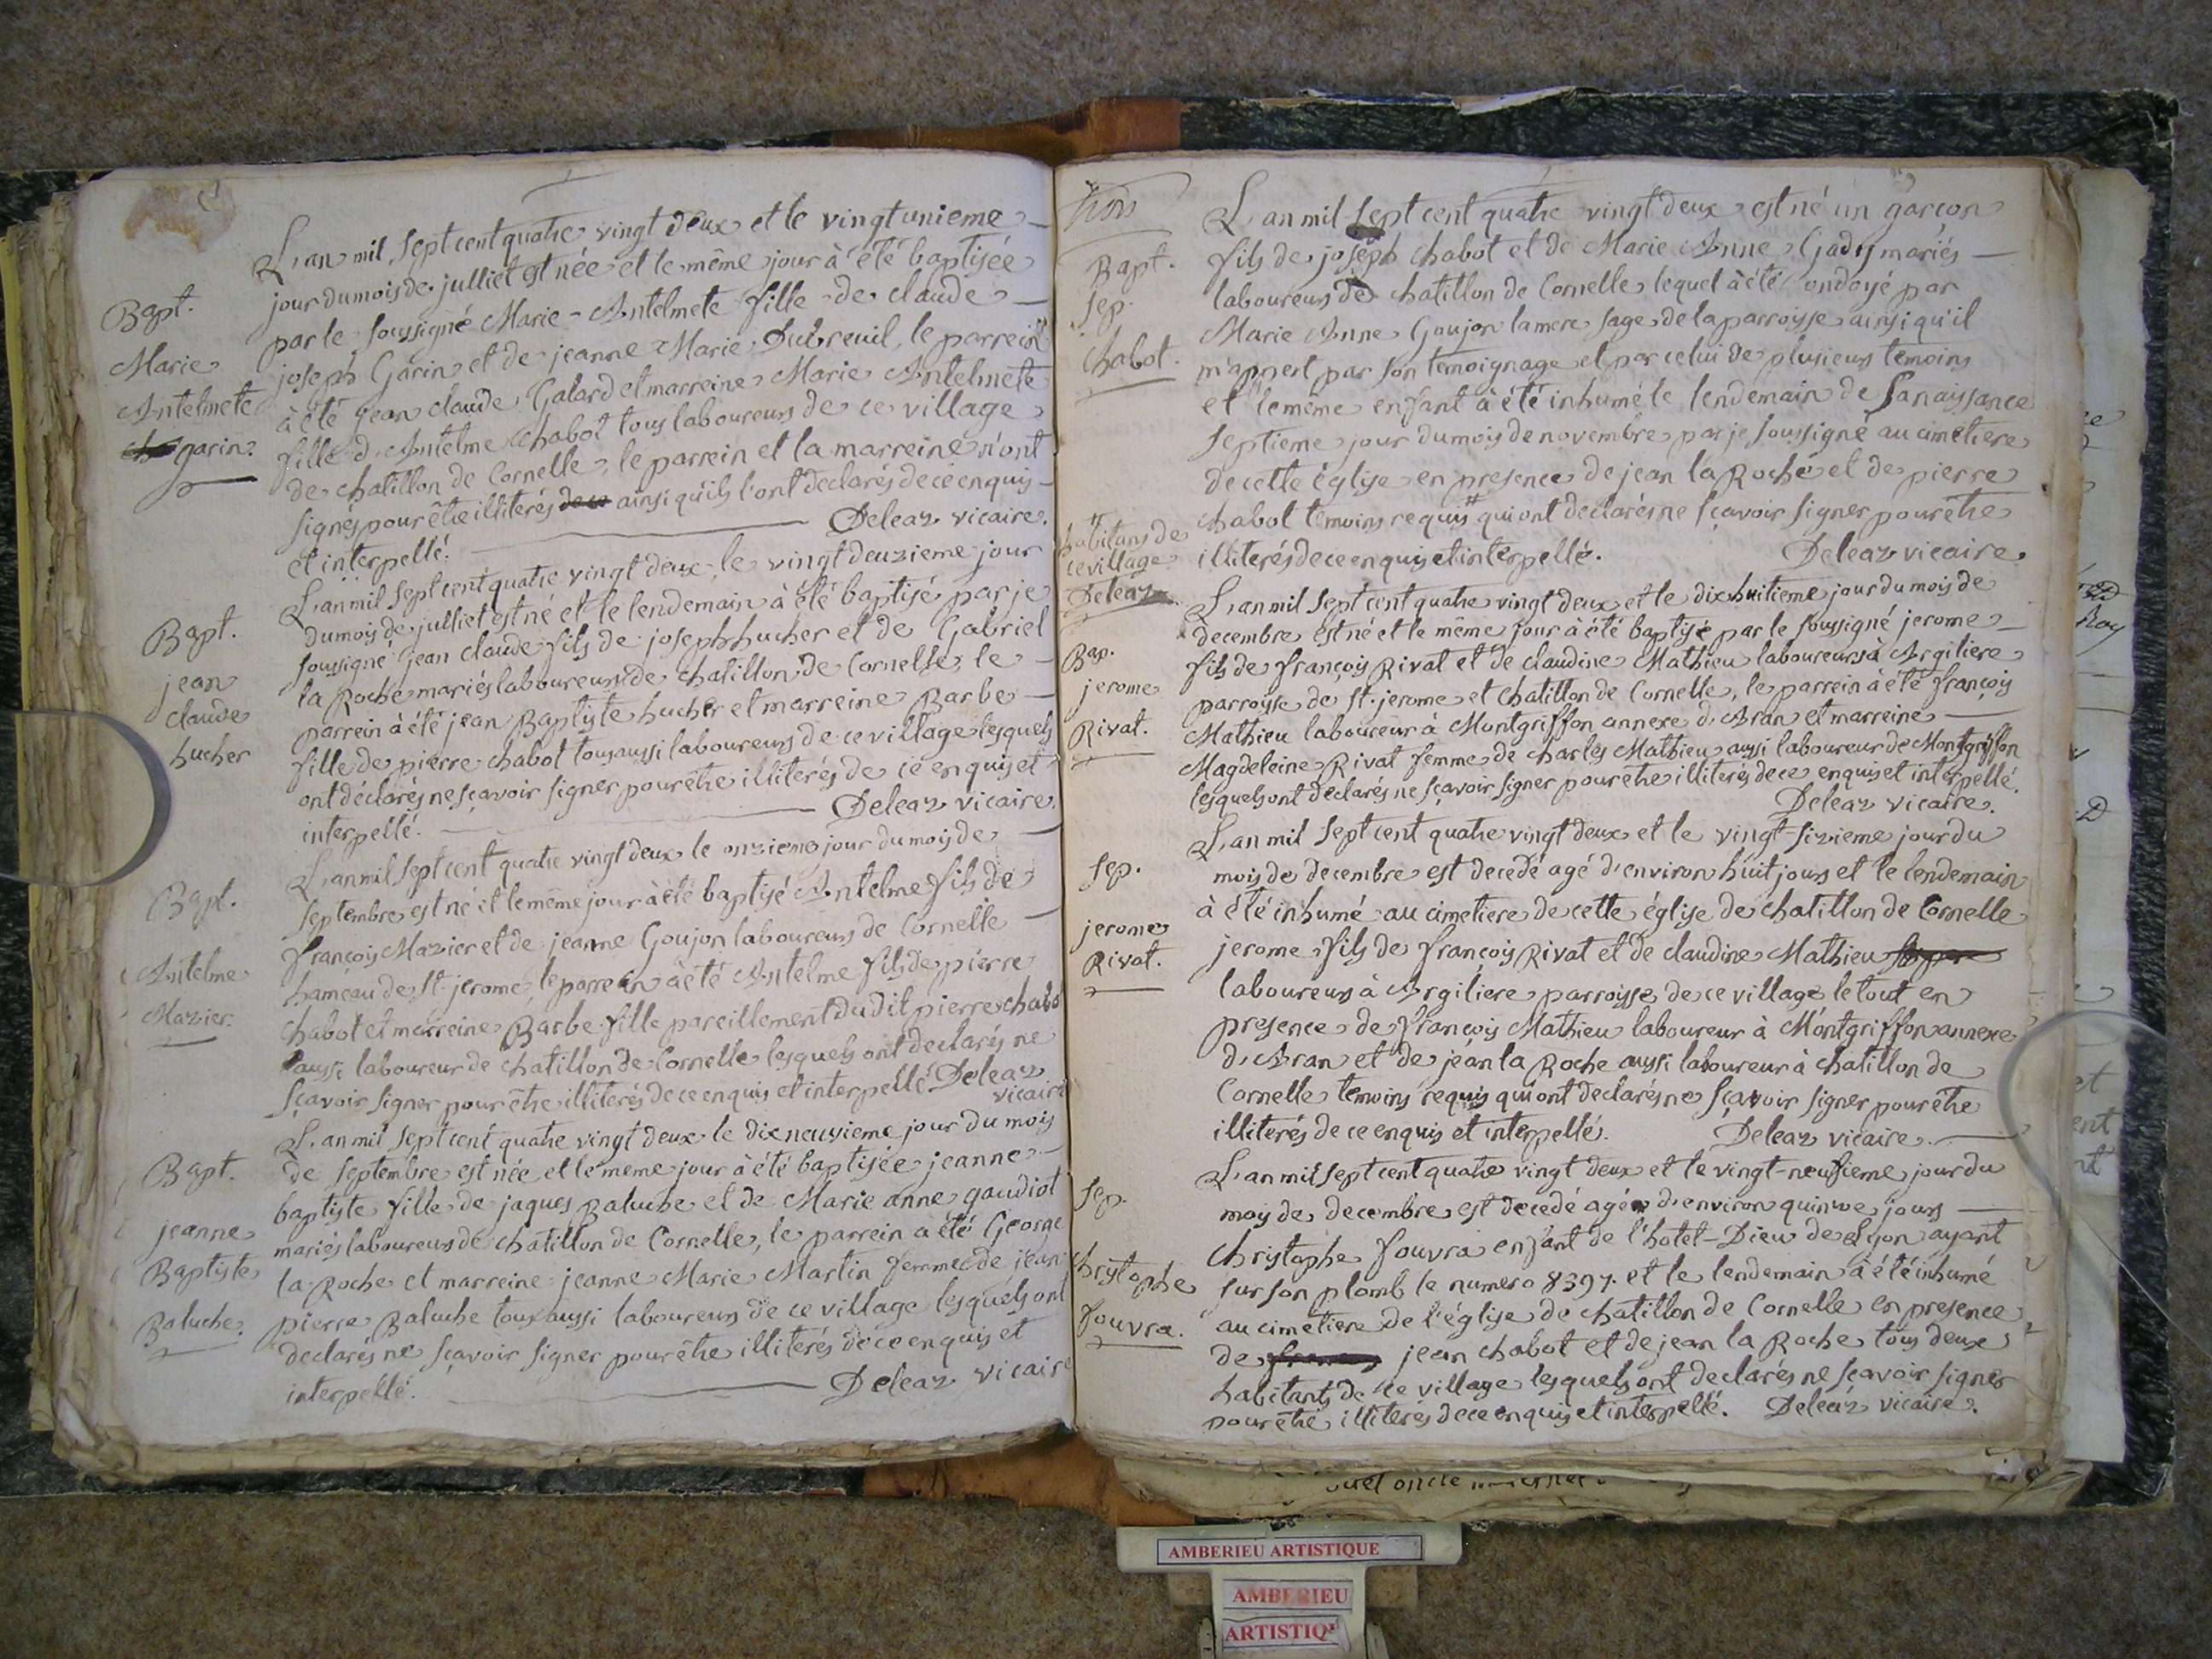 L'an mil sept cent quatre vingt deux et le vingt unieme
jour du mois de julliet est née et le même jour à été baptisée
par le soussigné Marie-Antelmete fille de claude
joseph Garin et de jeanne Marie Dubreuil, le parrein
à été jean claude Galard et marreine Marie Antelmete
fille d'Antelme Chabot tous laboureurs de ce village
de chatillon de Cornelle, le parrein et la marreine n'ont
signés pour être illiterés ainsi qu'ils l'ont declarés de ce enquis
et interpellé. Deleaz vicaire.
Bapt.
Marie
Antelmete
garin
L'an mil sept cent quatre vingt deux, le vingt deuzieme jour
du mois de julliet est né et le lendemain à été baptisé par je
soussigné jean claude fils de joseph hucher et de Gabriel
la Roche mariés laboureurs de chatillon de Cornelle, le
parrein à été jean Baptiste hucher et marreine Barbe
fille de pierre chabot tous aussi laboureurs de ce village lesquels
ont déclarés ne sçavoir signer pour être illiterés de ce enquis et
interpellé. Deleaz vicaire.
Bapt.
jean
claude
hucher
L'an mil sept cent quatre vingt deux le onzieme jour du mois de
septembre est né et le même jour à été baptisé Antelme fils de
françois Mazier et de jeanne Goujon laboureurs de Cornelle
haméau de st. jerome, le parrein à été Antelme fils de pierre
chabot et marreine Barbe fille pareillement dudit pierre chabot
aussi laboureur de chatillon de Cornelle lesquels ont declarés ne
sçavoir signer pour être illiterés de ce enquis et interpellé Deleaz
vicaire
Bapt.
Antelme
Mazier.
L'an mil sept cent quatre vingt deux le dix neuvieme jour du mois
de septembre est née et le même jour à été baptisée jeanne
baptiste fille de jaques Baluche et de Marie anne gaudiot
mariés laboureurs de chatillon de Cornelle, le parrein a été George
la Roche et marreine jeanne Marie Martin femme de jean
pierre Baluche tous aussi laboureurs de ce village lesquels ont
declarés ne sçavoir signer pour être illiterés de ce enquis et
interpellé. Deleaz vicaire
Bapt.
jeanne
Baptiste
Baluche.
L'an mil sept cent quatre vingt deux est né un garçon
fils de joseph chabot et de Marie Anne Gady mariés
laboureurs de chatillon de Cornelle lequel à été ondoyé par
Marie Anne Goujon la mere sage de la parroisse ainsi qu'il
m'appert par son temoignage et par celui de plusieurs temoins
et le même enfant à été inhumé le lendemain de sa naissance
septieme jour du mois de novembre par je soussigné au cimetiere
de cette église en presence de jean la Roche et de pierre
chabot temoins requis # qui ont declarés ne sçavoir signer pour être
illiterés de ce enquis et interpellé. Deleaz vicaire.
trois
Bapt.
sep.
chabot.
# habitans de
ce village
Deleaz
L'an mil sept cent quatre vingt deux et le dix huitieme jour du mois de
decembre est né et le même jour à été baptisé par le soussigné jerome
fils de françois Rivat et de claudine Mathieu laboureurs à Argiliere
parroisse de st. jerome et chatillon de Cornelle, le parrein à été françois
Mathieu laboureur à Montgriffon annexe d'Aran et marreine
Magdeleine Rivat femme de charles Mathieu aussi laboureur de Montgriffon
lesquels ont déclarés ne sçavoir signer pour être illiterés de ce enquis et interpellé.
Deleaz vicaire.
Bap.
jerome
Rivat.
L'an mil sept cent quatre vingt deux et le vingt-sizieme jour du
mois de decembre est decedé agé d'environ huit jours et le lendemain
à été inhumé au cimetiere de cette église de chatillon de Cornelle
jerome fils de françois Rivat et de claudine Mathieu
laboureurs à Argiliere parroisse de ce village le tout en
presence de françois Mathieu laboureur à Montgriffon annexe
d'Aran et de jean la Roche aussi laboureur à chatillon de
Cornelle temoins requis qui ont declarés ne sçavoir signer pour être
illiterés de ce enquis et interpellé. Deleaz vicaire.
sep.
jerome
Rivat.
L'an mil sept cent quatre vingt deux et le vingt-neufieme jour du
moy de decembre est decedé agé d'environ quinze jours
Christophe Jouvra enfant de l'hotel-Dieu de Lyon ayant
sur son plomb le numero 8397. et le lendemain à été inhumé
au cimetiere de l'église de chatillon de Cornelle en presence
de jean chabot et de jean la Roche tous deux
habitants de ce village lesquels ont declarés ne sçavoir signer
pour être illiterés de ce enquis et interpellé. Deleaz vicaire.
sep.
Christophe
Jouvra.
AMBERIEU ARTISTIQUE
AMBERIEU
ARTISTIQ